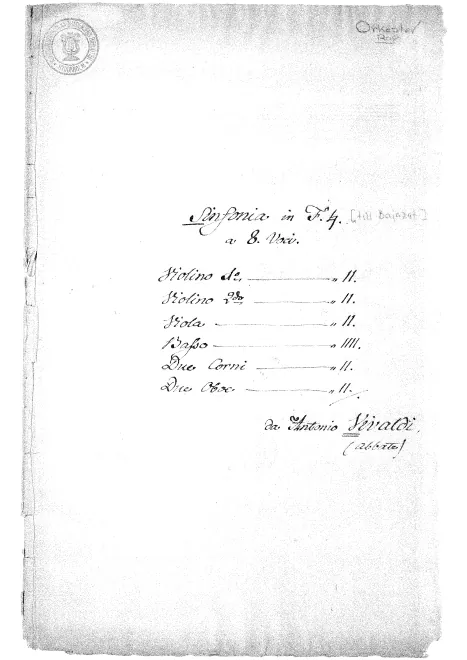 Orkester
Rar
Sinfonia in F. 4. [till Bajazet]
a 8. Voci.
Violino 1o. „ 11.
Violino 2do „ 11.
Viola „ 11.
Baſso „ 1111.
Due Corni „ 11.
Due Oboe „ 11.
da Antonio Vivaldi.
(abbate)